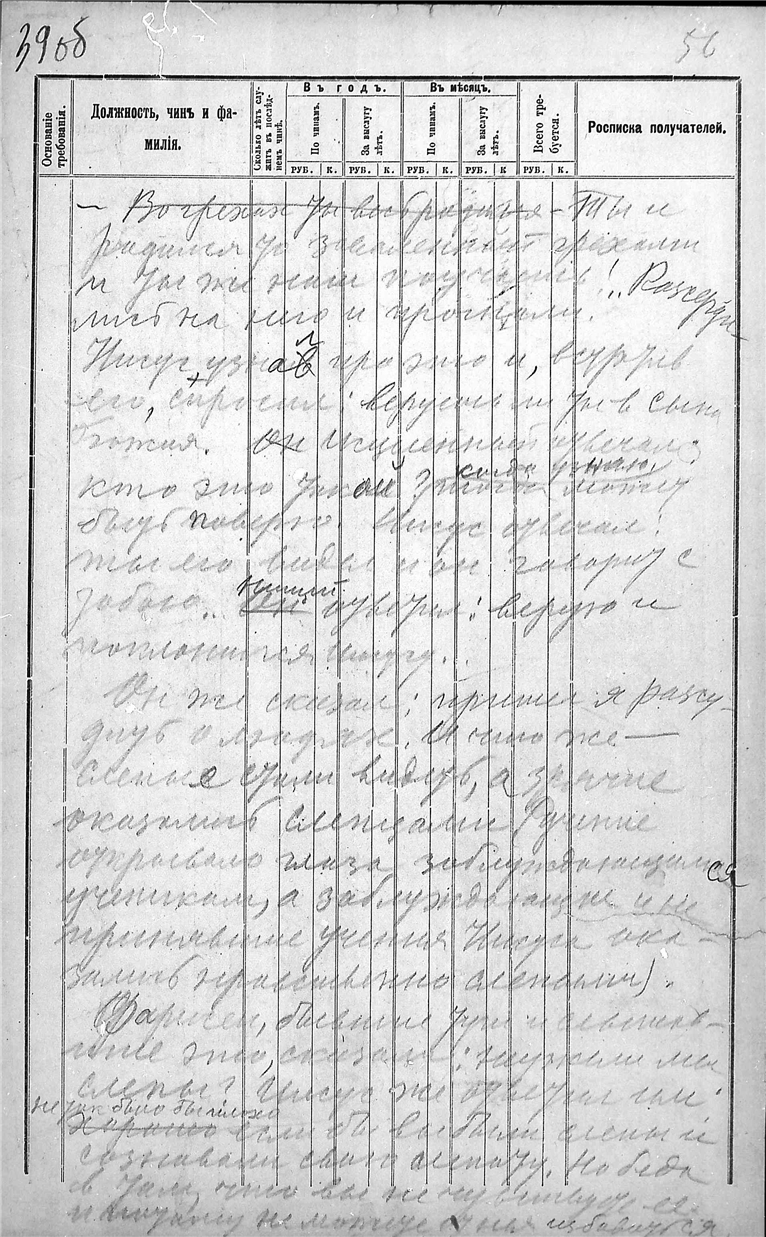 39об
56
Основаніе требованія.
Должность, чинъ и фамилія.
Сколько лѣтъ служитъ въ послѣднемъ чинѣ.
Въ годъ.
Въ мѣсяцъ.
По чинамъ.
За выслугу лѣтъ.
По чинамъ.
За выслугу лѣтъ.
Всего требуется.
Росписка получателей.
РУБ. К. РУБ. К. РУБ. К. РУБ. К. РУБ. К.
— Во грехах ты — Ты и
родился то заваленный грехами
и ты же наш поучаешь!.. Разсерди-
лись на него и прогнали.
Иисус узнал про это и, встретив
его, спросил: веруешь ли ты в сына
божия. Он Исцеленный отвечал:
кто это такой когда узнаю, может
быть поверю. Иисус отвечал:
ты его видел и он говорит с
тобою.. Он нищий ответил: верую и
поклонился Иисусу..
Он же сказал: пришел я разсу-
дить о людях. И что же —
слепые стали видеть, а зрячие
оказались слепцами (Учение
открывало глаза заблуждающимся
ученикам, а заблуждающие и не
принявшие учения Иисуса ока-
зались нравственно слепыми).
Фарисеи, бывшие тут и слышав-
шие это, сказали: неужели мы
слепы? Иисус же ответил им:
не так было бы плохо
Хорошо если бы вы были слепы и
сознавали свою слепоту. Но беда
в том, что вы не чувствуете ее
и потому не можете от нея избавиться